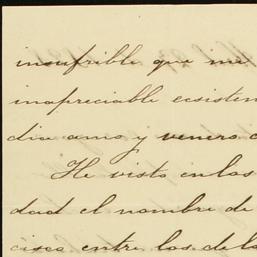 insufrible que me
inapreciable ecsisten
dia amo y venero
He visto en las
dad el nombre de
cisca entre los de la